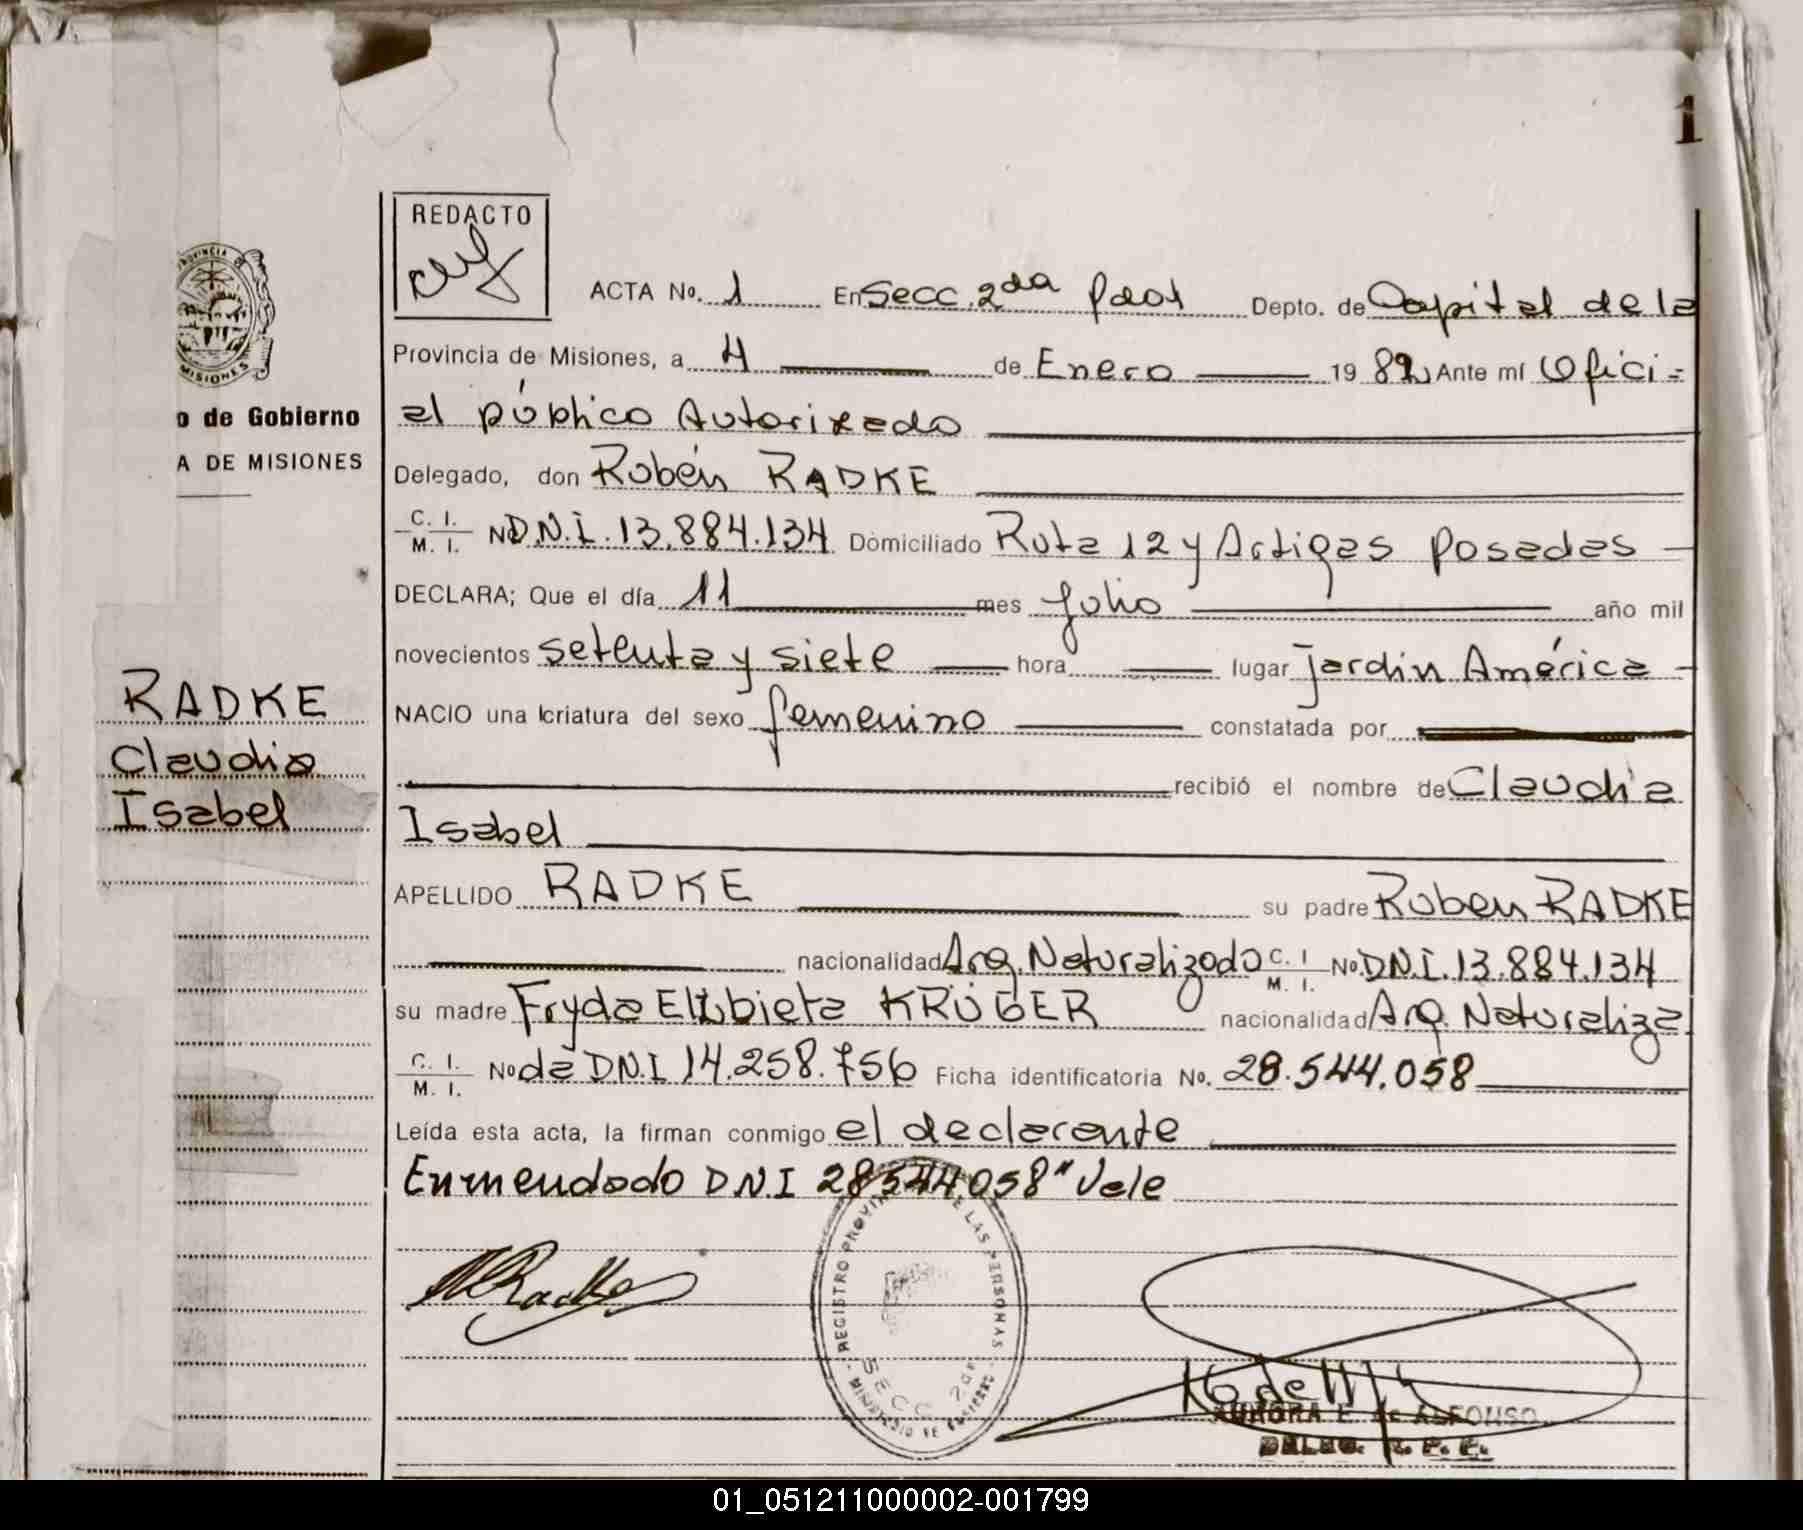 1
REDACTO
ACTA No. 1 En Secc. 2da Pdas Depto. de Capital de la
Provincia de Misiones, a 4 de Enero 1982 Ante mí Ofici=
al público Autorizado
Delegado, don Rubén RADKE
C. I. M. I. No D.N.I. 13.884.134 Domiciliado Ruta 12 y Artigas Posadas
DECLARA; Que el día 11 mes Julio año mil
novecientos setenta y siete hora lugar Jardín América
NACIO una criatura del sexo femenino constatada por
recibió el nombre de Claudia
Isabel
APELLIDO RADKE su padre Ruben RADKE
nacionalidad Arg. Naturalizado C. I. M. I. No. D.N.I. 13.884.134
su madre Fryda Elzbieta KRÜGER nacionalidad Arg. Naturaliza
C. I. M. I. No da DN.I 14.258.756 Ficha identificatoria No. 28.544.058
Leída esta acta, la firman conmigo el declarante
Enmendado D N.I 28544058" Vale
PROVINCIA DE
MISIONES
o de Gobierno
A DE MISIONES
RADKE
Claudia
Isabel
Radke
REGISTRO PROVINCIAL DE LAS PERSONAS
SECC 2da
MINISTERIO DE GOBIERNO
AURORA E. de ALFONSO
01_051211000002-001799